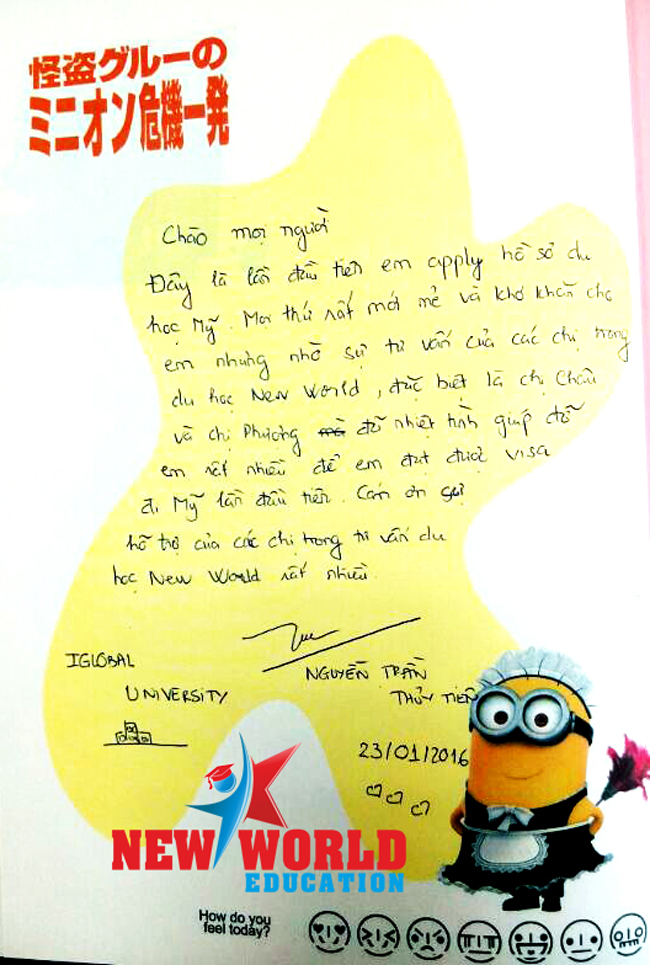 怪盗グルーの
ミニオン危機一発
Chào mọi người
Đây là lần đầu tiên em apply hồ sơ du
học Mỹ. Mọi thứ rất mới mẻ và khó khăn cho
em nhưng nhờ sự tư vấn của các chị trong
du học New World, đặc biệt là chị Châu
và chị Phương đã nhiệt tình giúp đỡ
em rất nhiều để em đạt được visa
đi Mỹ lần đầu tiên. Cám ơn sự
hỗ trợ của các chị trong tư vấn du
học New World rất nhiều.
IGLOBAL
UNIVERSITY
NGUYỄN TRẦN
THỦY TIÊN
23/01/2016
NEW WORLD
EDUCATION
How do you
feel today?